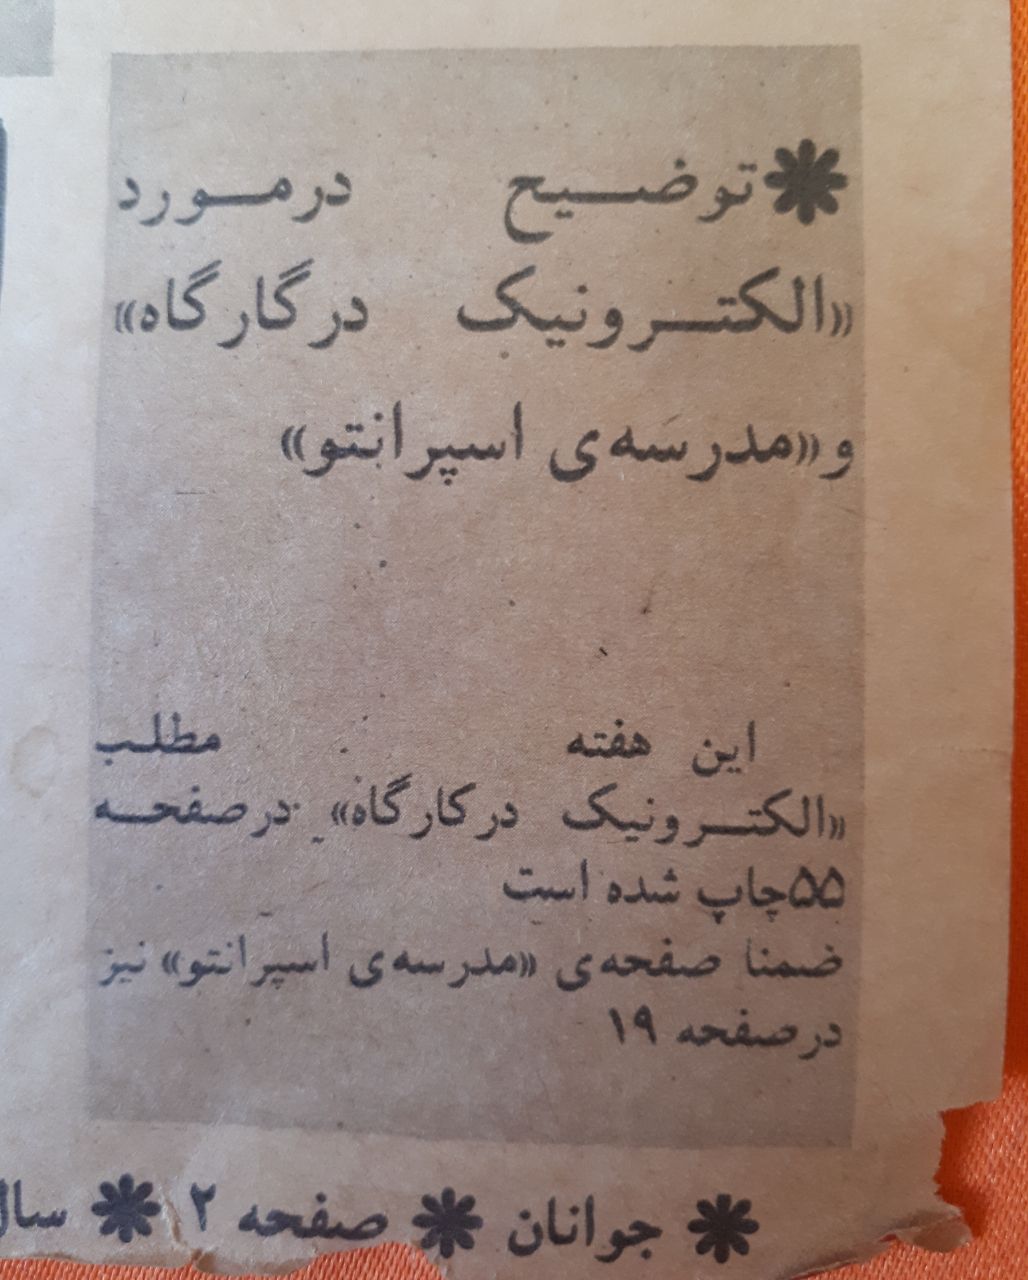 توضیح درمورد
«الکترونیک درگارگاه»
و«مدرسه‌ی اسپرانتو»
این هفته مطلب
«الکترونیک درکارگاه» درصفحه
۵۵چاپ شده است
ضمنا صفحه‌ی «مدرسه‌ی اسپرانتو» نیز
درصفحه ۱۹
جوانان صفحه ۲ سال